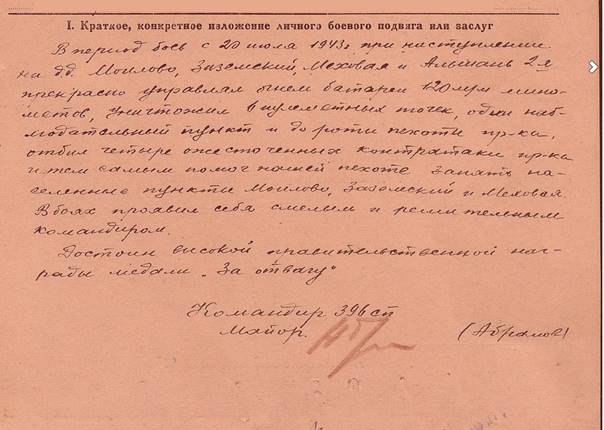 I. Краткое, конкретное изложение личного боевого подвига или заслуг
В период боев с 20 июля 1943г. при наступлении
на д.д. Моилово, Заземский, Меховая и Альшань 2-я
прекрасно управлял огнем батареи 120 м/м мино-
метов, уничтожил 8 пулеметных точек, один наб-
людательный пункт и до роты пехоты пр-ка,
отбил четыре ожесточенных контратаки пр-ка
и тем самым помог нашей пехоте занять на-
селенные пункты Моилово, Заземский и Меховая.
В боях проявил себя смелым и решительным
командиром.
Достоин высокой правительственной наг-
рады медали „За отвагу"
Командир 396 сп
Майор. (Абрамов)